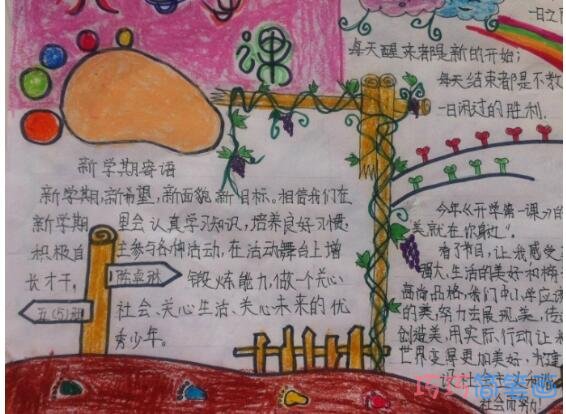 课
每天醒来都是新的开始;
每天结束都是不教
一日闲过的胜利.
新学期寄语
新学期,新希望,新面貌,新目标。相信我们在
新学期里会认真学习知识,培养良好习惯,
积极自主参与各种活动,在活动舞台上增
长才干,锻炼能力,做一个关心
社会、关心生活、关心未来的优
秀少年。
陈卓班
五(5)班
今年《开学第一课》的
美就在你身边".
看了节目,让我感受
强大、生活的美好和
高尚品格,我们中小学应
的美,努力去展现美,传
创造美,用实际行动让
世界变得更加美好,为建
设社会主义和谐
社会而努力!